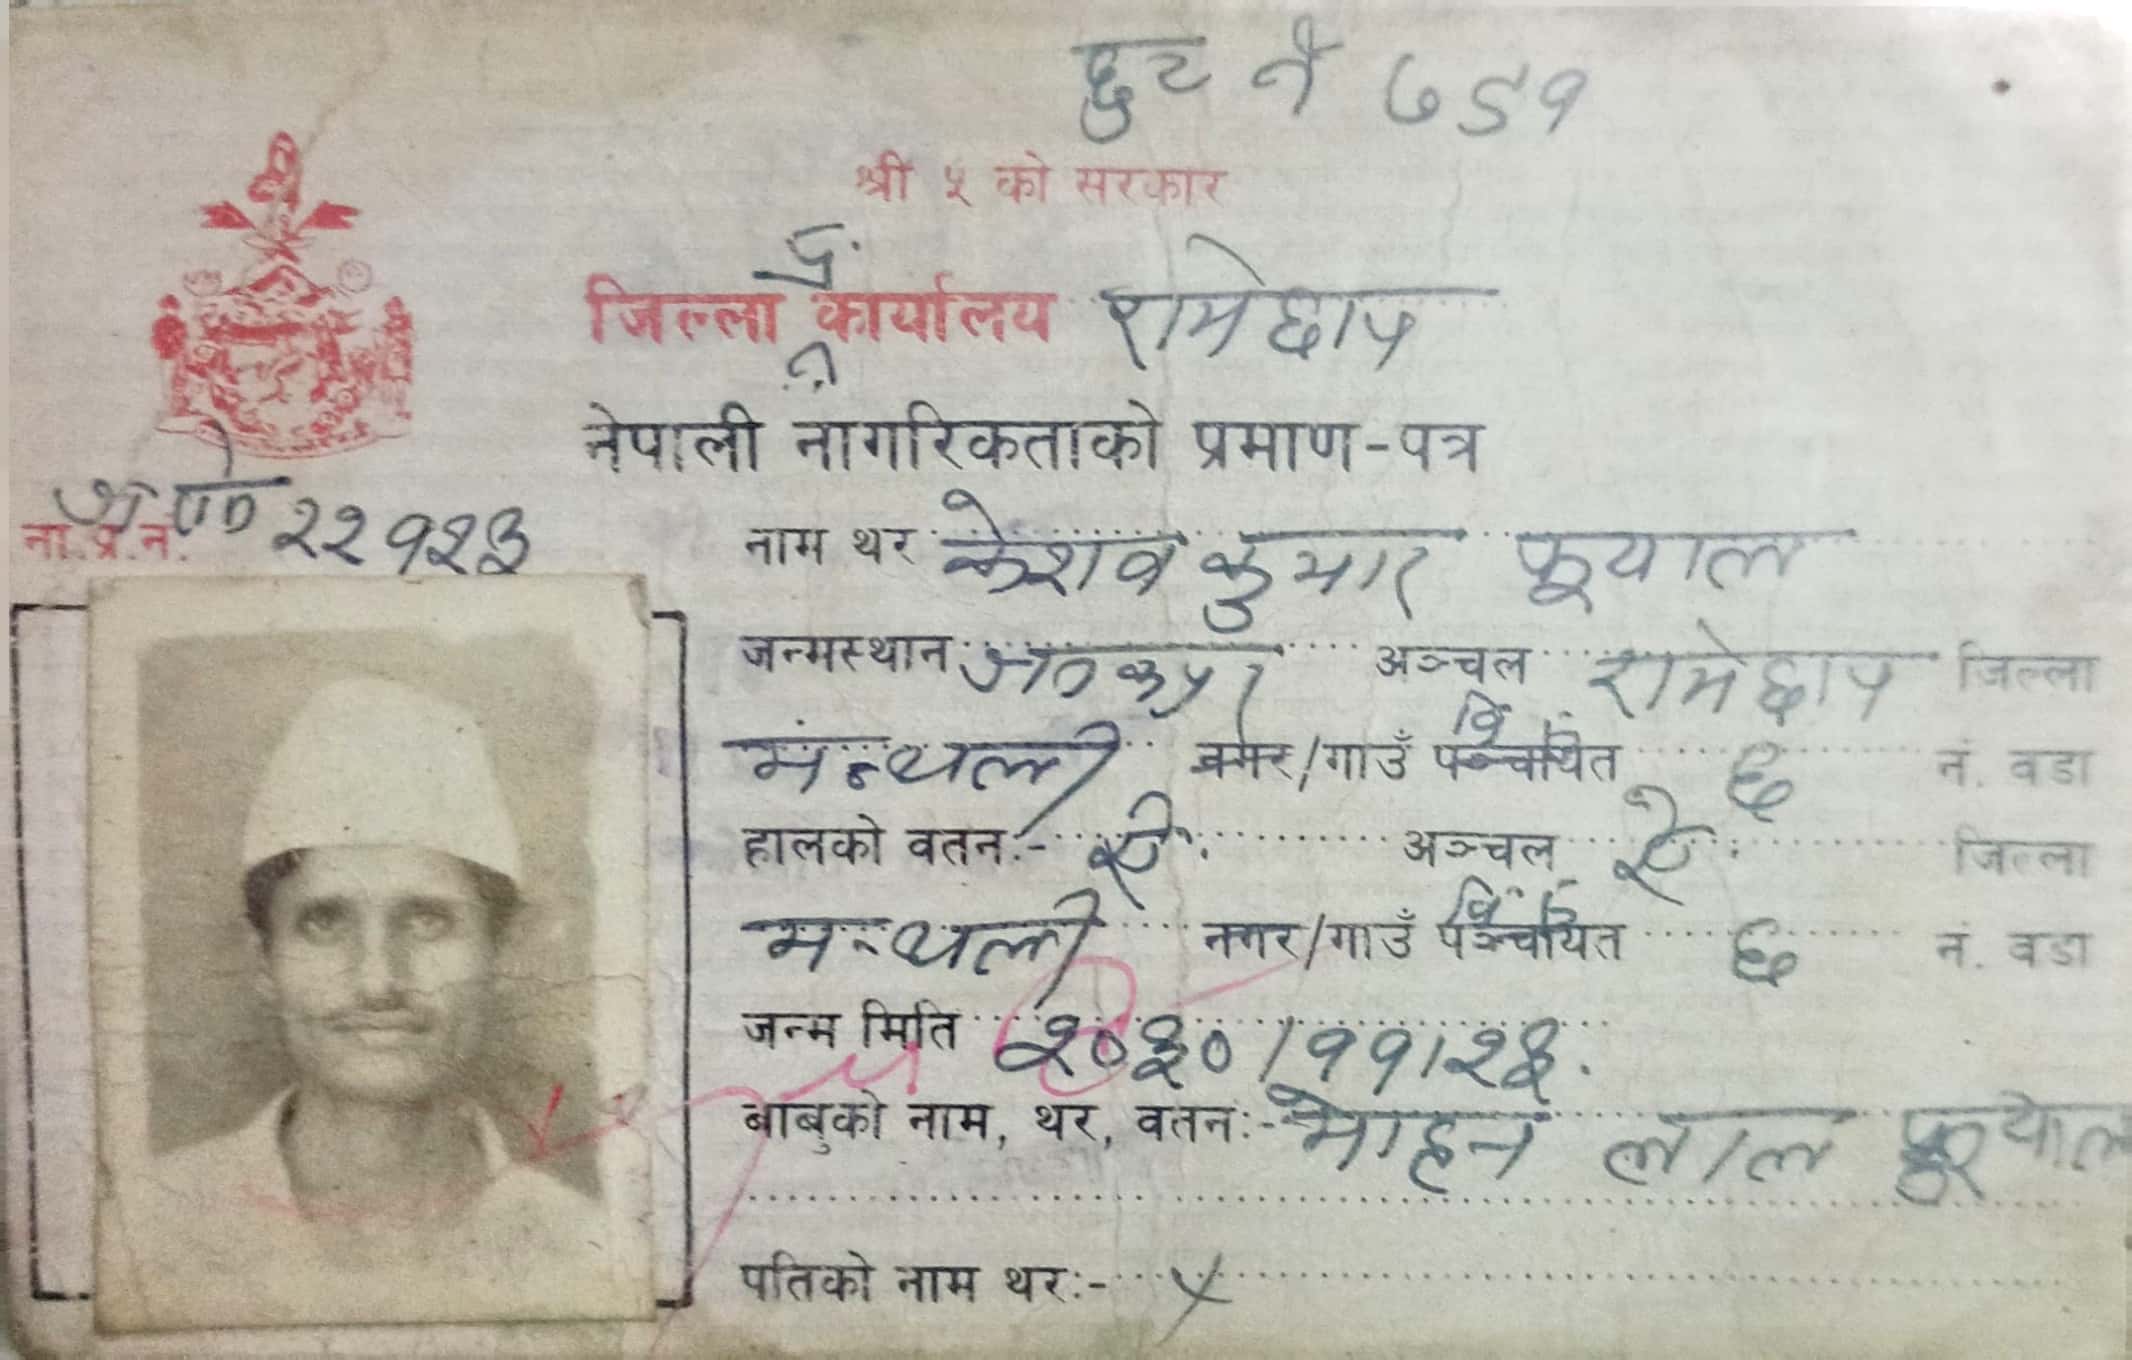 छुट नं ७५१
श्री ५ को सरकार
प्र.
जिल्ला कार्यालय रामेछाप
नेपाली नागरिकताको प्रमाण-पत्र
ना.प्र.नं. २२१२३
नाम थर केशव कुमार फूयाल
जन्मस्थान जनकपुर अञ्चल रामेछाप जिल्ला
मन्थली नगर/गाउँ पञ्चायत वि. ६ नं. वडा
हालको वतन:- ऐ. अञ्चल ऐ. जिल्ला
मन्थली नगर/गाउँ पञ्चायत वि. ६ नं. वडा
जन्म मिति २०३०/११/२३.
बाबुको नाम, थर, वतन:- मोहन लाल फूयाल
पतिको नाम थर:- ×